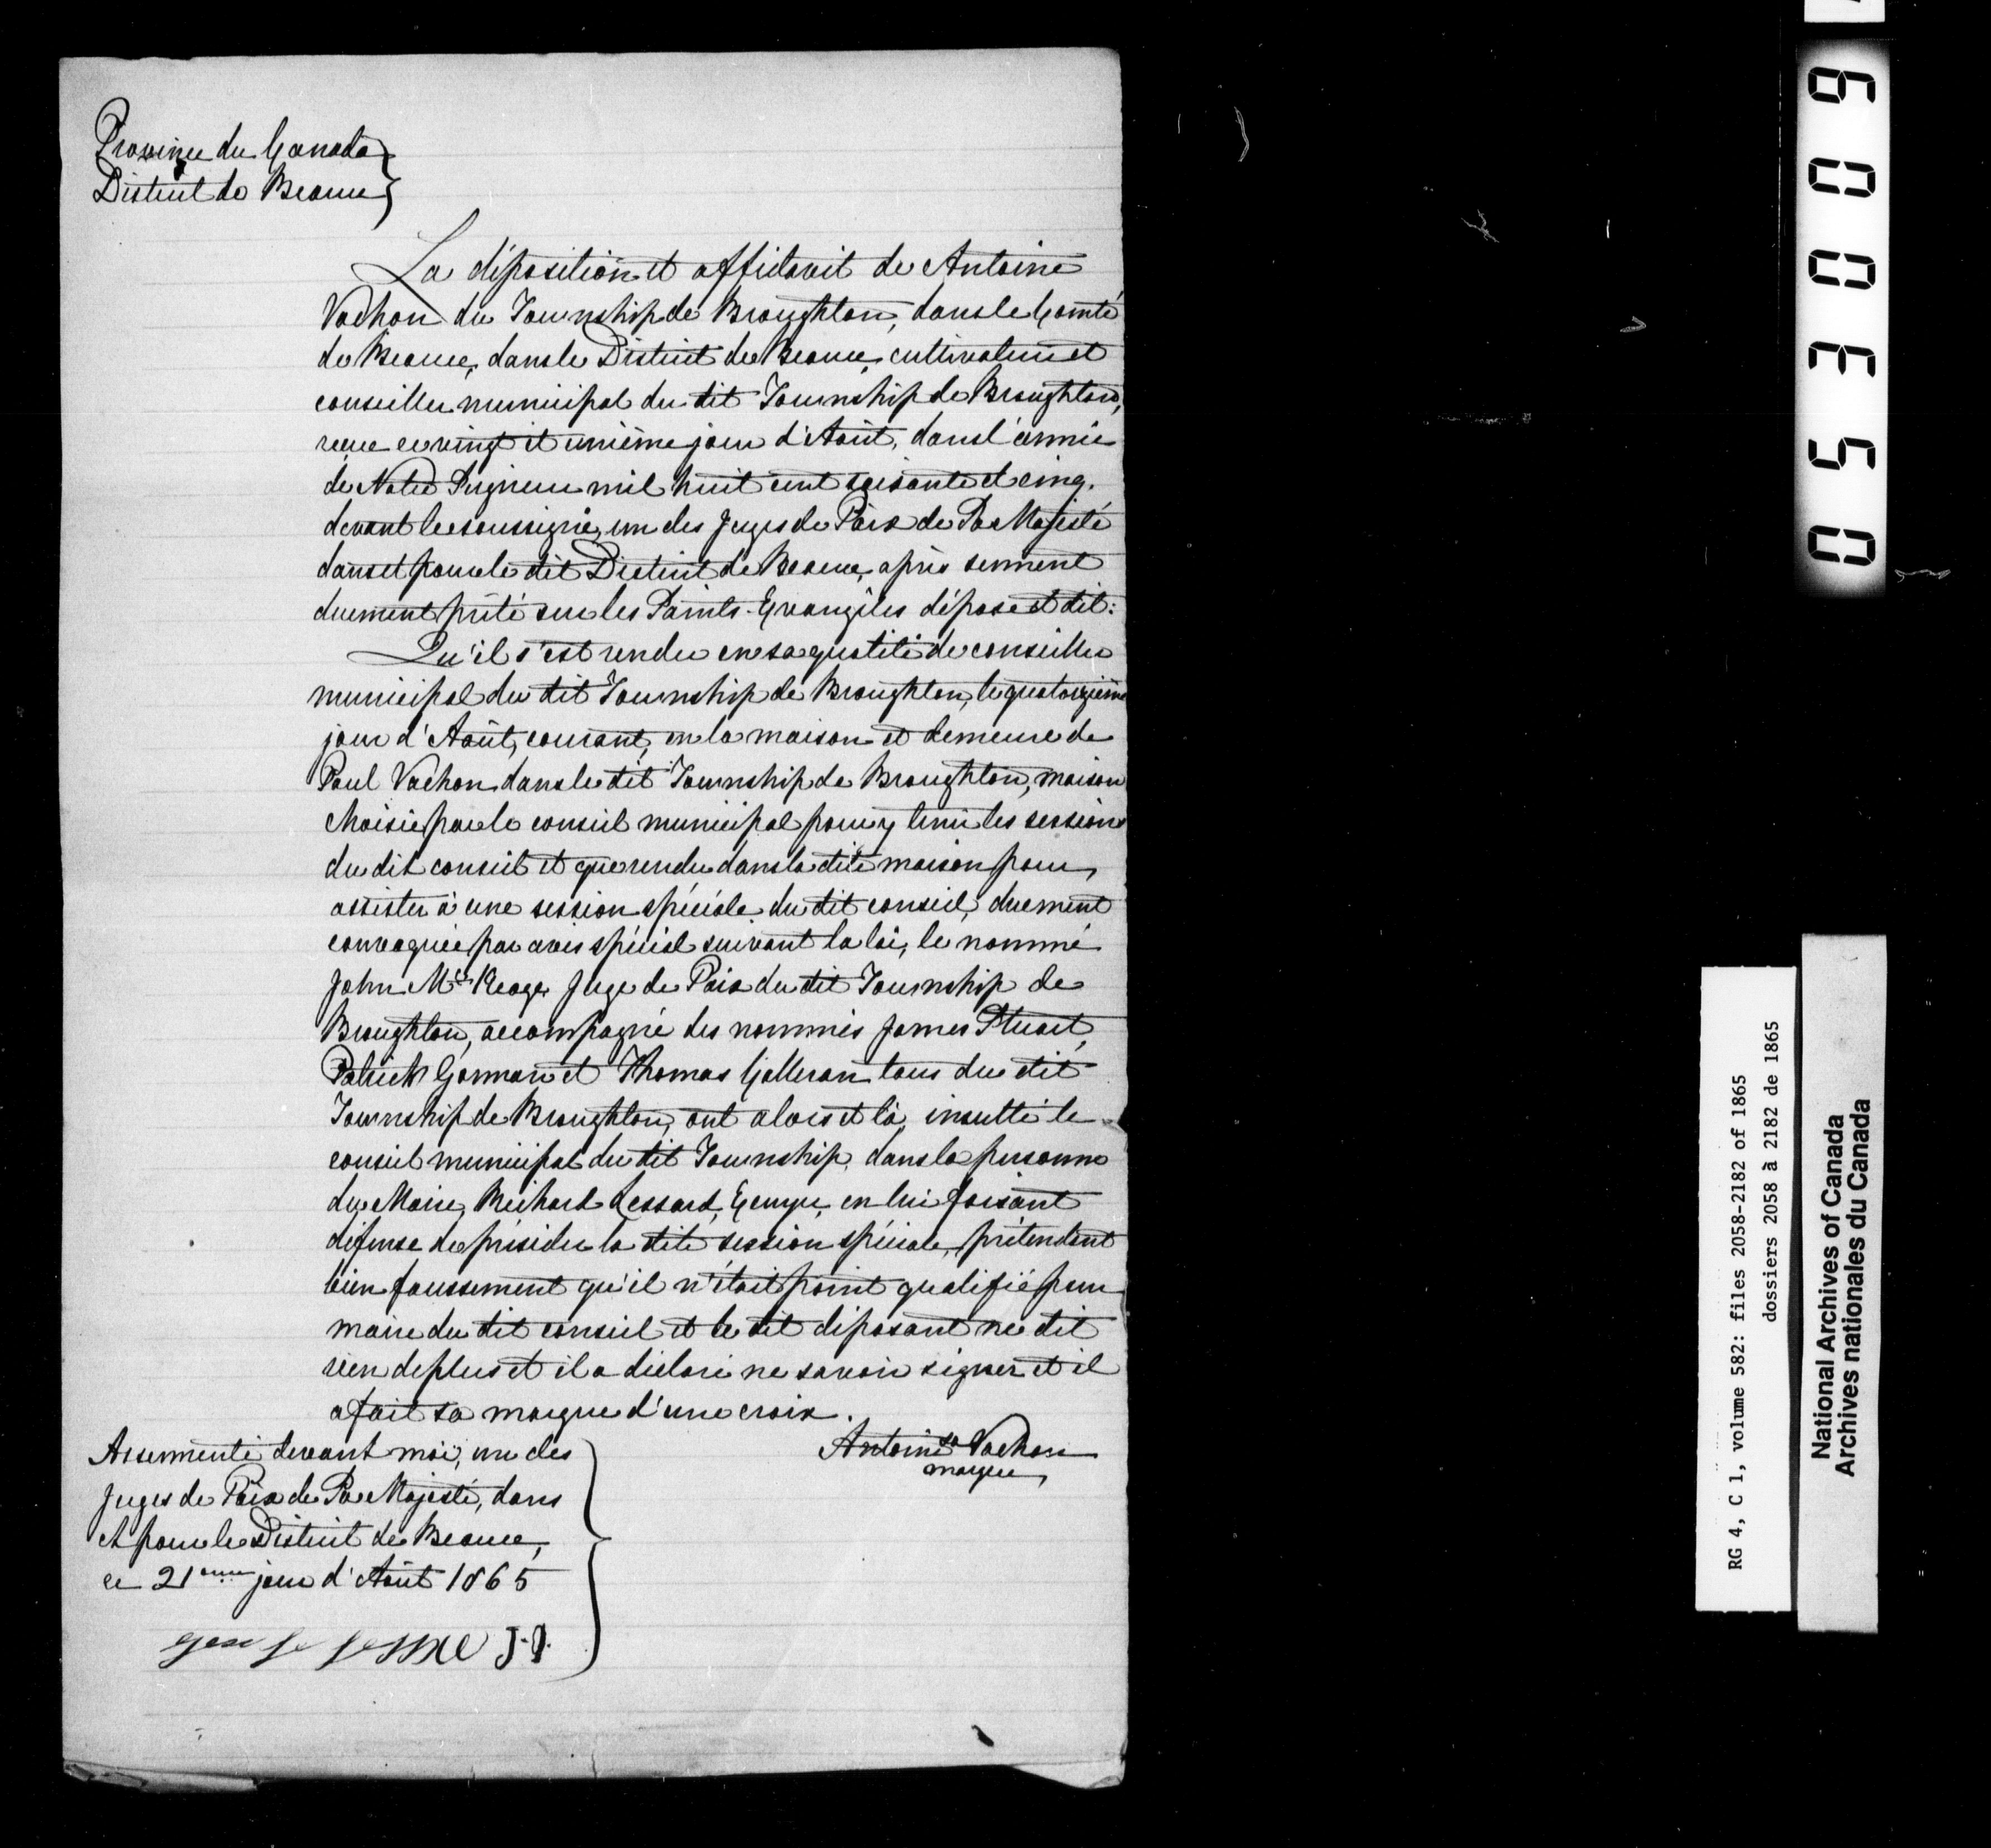 Province du Canada
District de Beauce
La déposition et affidavit de Antoine
Vachon du Township de Broughton, dans le Comté
de Beauce, dans le District de Beauce, cultivateur et
conseiller municipal du dit Township de Broughton,
reçue ce vingt et unième jour d'Août, dans l'année
de Notre Seigneur mil huit cent soixante et cinq,
devant le soussigné, un des Juges de Paix de Sa Majesté
dans et pour le dit District de Beauce, après serment
duement prêté sur les Saints-Evangiles dépose et dit:
Qu'il s'est rendu en sa qualité de conseiller
municipal du dit Township de Broughton, le quatorzième
jour d'Août, courant, en la maison et demeure de
Paul Vachon dans le dit Township de Broughton, maison
choisie par le conseil municipal pour y tenir les sessions
du dit conseil et que rendu dans la dite maison pour
assister à une session spéciale du dit conseil, duement
convoquée par avis spécial suivant la loi, le nommé
John Mc Juge de Paix du dit Township de
Broughton, accompagné des nommés James Stuart,
Patrick Gorman et Thomas Galleran tous du dit
Township de Broughton, ont alors et là, insulté le
conseil municipal du dit Township, dans la personne
du Maire, Richard Lessard, Ecuyer, en lui faisant
défense de présider la dite session spéciale, prétendant
bien faussement qu'il n'était point qualifié pour
maire du dit conseil et le dit déposant ne dit
rien de plus et il a déclaré ne savoir signer et il
a fait sa marque d'une croix.
Antoine sa Vachon
marque
Assermenté devant moi, un des
Juges de Paix de Sa Majesté, dans
et pour le District de Beauce,
ce 21ème jour d'Août 1865
J.P.
RG 4, C 1, volume 582: files 2058-2182 of 1865
dossiers 2058 à 2182 de 1865
National Archives of Canada
Archives nationales du Canada
053009